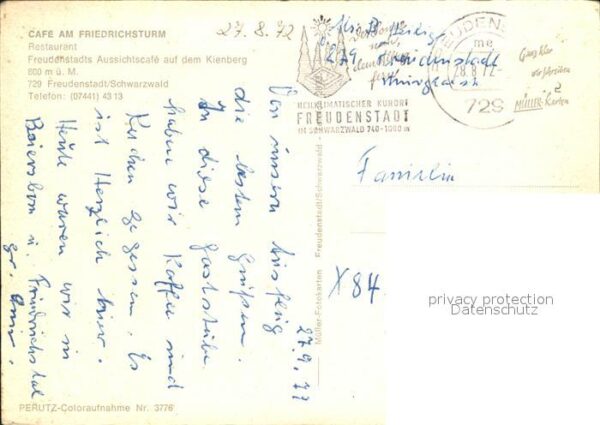 CAFE AM FRIEDRICHSTURM
Restaurant
Freudenstadts Aussichtscafé auf dem Kienberg
800 m ü. M.
729 Freudenstadt/Schwarzwald
Telefon: (07441) 4313
27.8.72
HEILKLIMATISCHER KURORT
FREUDENSTADT
IM SCHWARZWALD 740-1000 m
28.8.72
me
729
Ganz klar
wir schreiben
MÜLLER-Karten
Von unserm Ausflug
die besten Grüßen.
In diese Gaststube
haben wir Kaffee und
Kuchen gegessen. Es
ist Herzlich hier.
Heute waren wir in
Baiersbron u. Friedrichstal
gr.
Familie
X84
Müller-Fotokarten · Freudenstadt/Schwarzwald
PERUTZ-Coloraufnahme Nr. 3776
privacy protection
Datenschutz